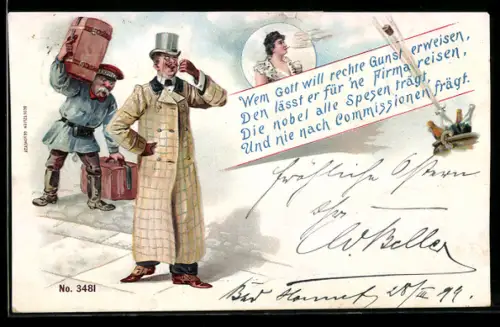 Wem Gott will rechte Gunst erweisen,
Den lässt er für 'ne Firma reisen,
Die nobel alle Spesen trägt,
Und nie nach Commissionen frägt.
Fröhliche Ostern
No. 3481
Bad Honnef 28/III 99.